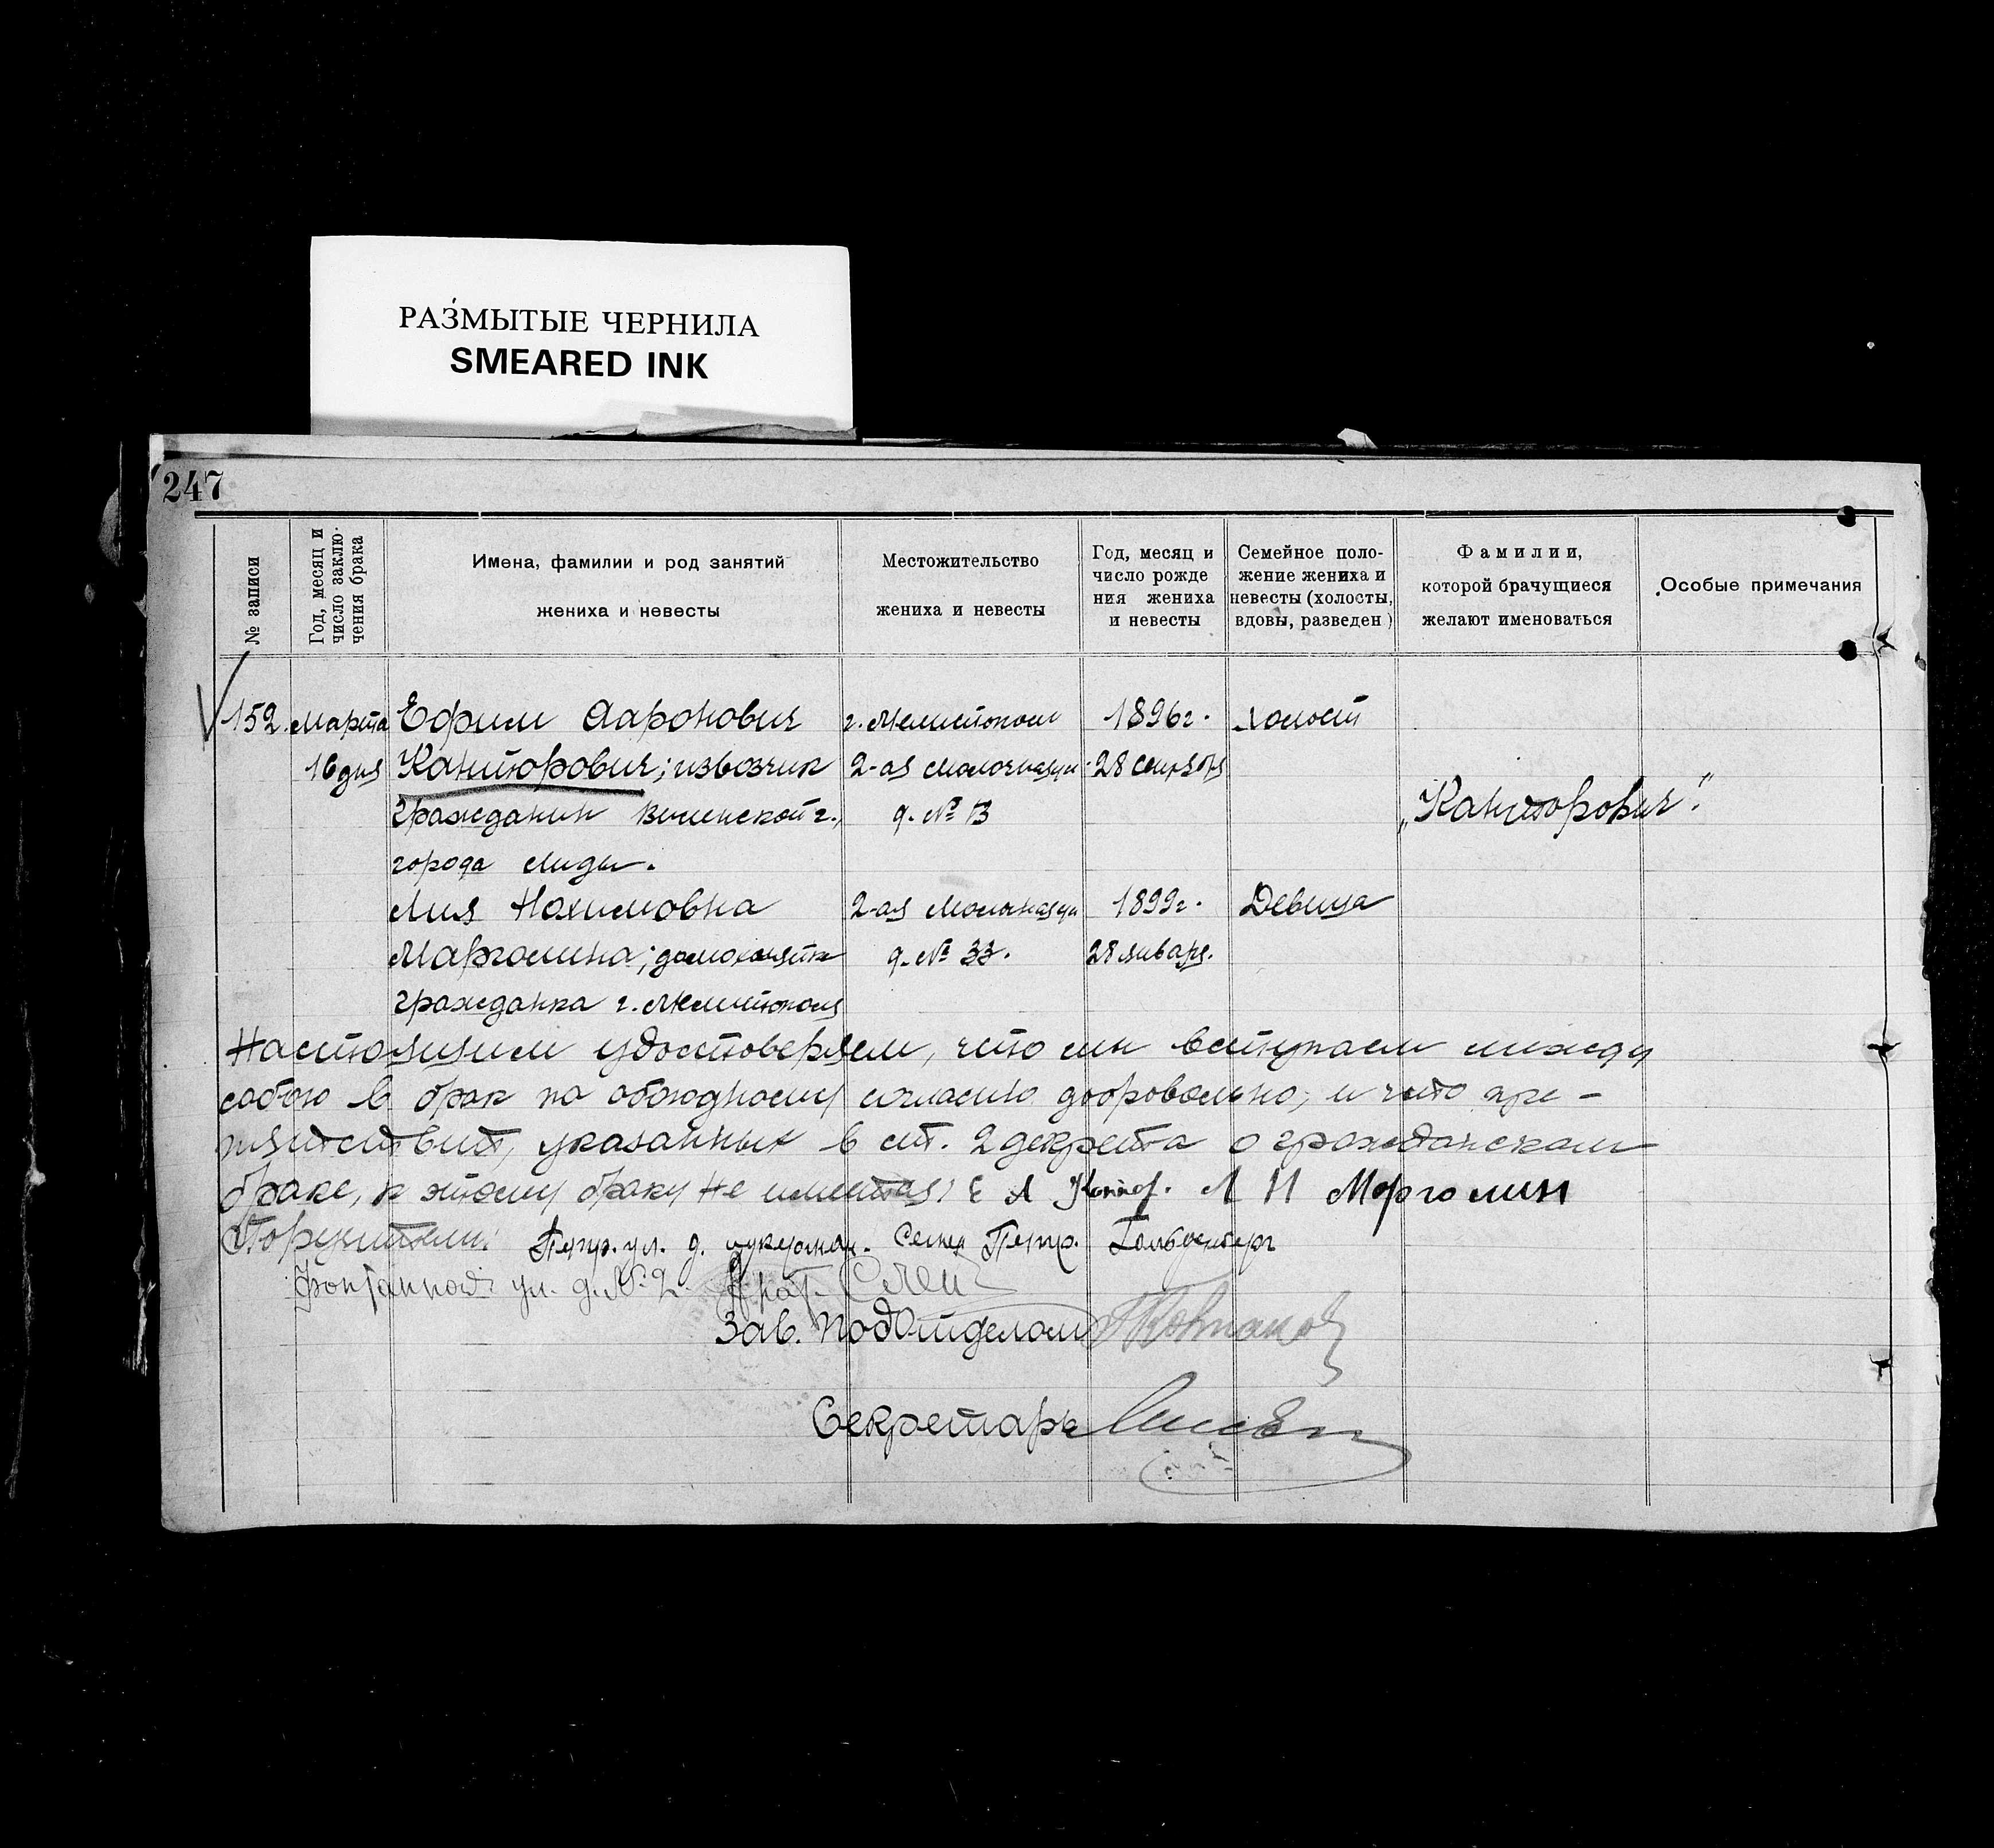 РАЗМЫТЫЕ ЧЕРНИЛА
SMEARED INK
247
№ записи
Год, месяц и
число заклю-
чения брака
Имена, фамилии и род занятий
жениха и невесты
Местожительство
жениха и невесты
Год, месяц и
число рожде
ния жениха
и невесты
Семейное поло-
жение жениха и
невесты (холосты,
вдовы, разведен )
Фамилии,
которой брачущиеся
желают именоваться
Особые примечания
152. Марта Ефим Ааронович г. Мелитополь 1896г. холост
16 дня Канторович; извозчик 2-ая Молочная ул. 28 сентября
гражданин Виленской г., д. № 13 „Канторович".
города Лиды.
Лия Нохимовна 2-ая Молочная ул 1899г. Девица
Марголина; домохозяйка д. № 33. 28 января.
гражданка г. Мелитополя
Настоящим удостоверяем, что мы вступаем между
собою в брак по обоюдному согласию добровольно; и что пре-
пятствий, указанных в ст. 2 декрета о гражданском
браке, к этому браку не имеется; Е А Л Н Марголин
Поручители: ул. д. Гольденберг
ул. д. № 2
Зав. Подотделом
Секретарь